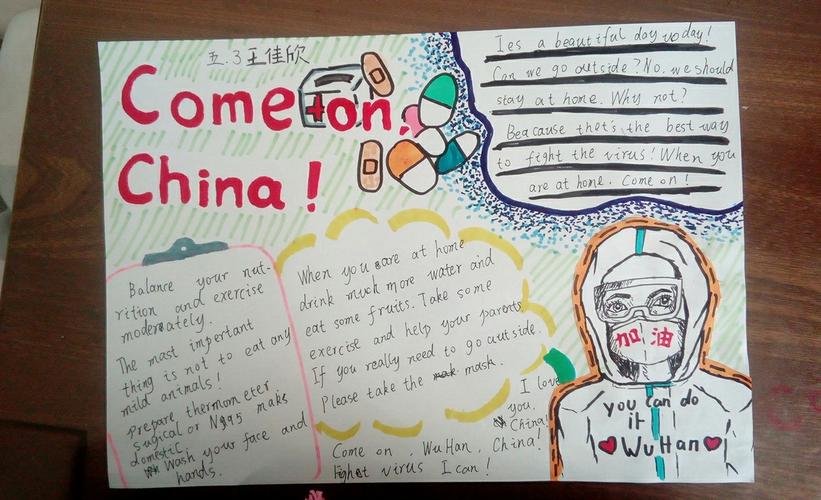 五.3王佳欣
Come on,
China!
Ies a beautiful day today!
Can we go outside? No. we should
stay at home. Why not?
Beacause thet's the best way
to fight the virus! When you
are at home. Come on!
Balance your nut-
rition and exercise
moderately.
The mast important
thing is not to eat any
mild animals!
Prepare thermometer
Sugical or N95 maks
domestic.
Wash your face and
hands.
When you are at home
drink much more water and
eat some fruits. Take some
exercise and help your parents
If you really need to go outside.
Please take the mask.
I love
you,
China!
Come on, WuHan, China!
fight virus I can!
加油
you can do
it
WuHan